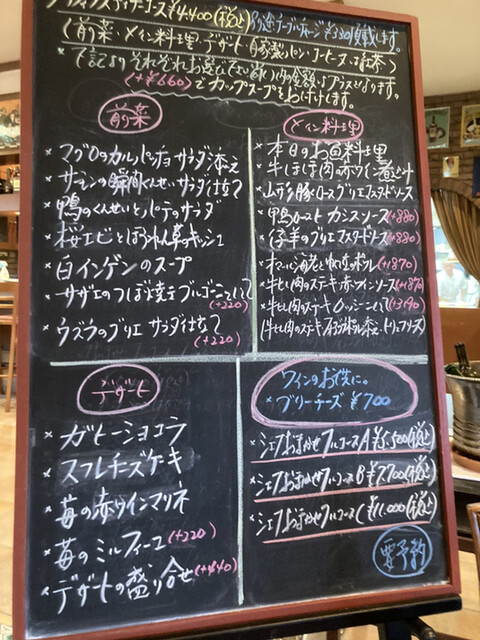 プリフィクスディナーコース¥4,400(税込) 別途テーブルチャージ¥330頂戴します。
(前菜・メイン料理・デザート・自家製パン・コーヒー又は紅茶)
*下記よりそれぞれお選び下さい。( )内の金額がプラスとなります。
(+¥660)でカップスープをお付けします。
前菜
* マグロのカルパッチョ サラダ添え
* サーモンの瞬間くんせい サラダ仕立て
* 鴨のくんせいとパテのサラダ
* 桜エビとほうれん草のキッシュ
* 白インゲンのスープ
* サザエのつぼ焼きブルゴーニュ風(+220)
* ウズラのグリエ サラダ仕立て(+220)
メイン料理
* 本日のお魚料理
* 牛ほほ肉の赤ワイン煮込み
* 豚ロースグリエ マスタードソース
* 鴨ロースト カシスソース(+880)
* 仔羊のグリエ マスタードソース(+880)
* オマール海老と帆立のポワレ(+1870)
* 牛ヒレ肉のステーキ 赤ワインソース(+1870)
* 牛ヒレ肉のステーキ ロッシーニ風(+3190)
(牛ヒレ肉のステーキ フォアグラ添え トリュフソース)
デザート
* ガトーショコラ
* スフレチーズケーキ
* 苺の赤ワインマリネ
* 苺のミルフィーユ(+220)
* デザートの盛り合せ(+440)
ワインのお供に。
* ブリーチーズ ¥700
* シェフおまかせフルコースA ¥5,500(税込)
* シェフおまかせフルコースB ¥7,700(税込)
* シェフおまかせフルコースC ¥11,000(税込)
要予約